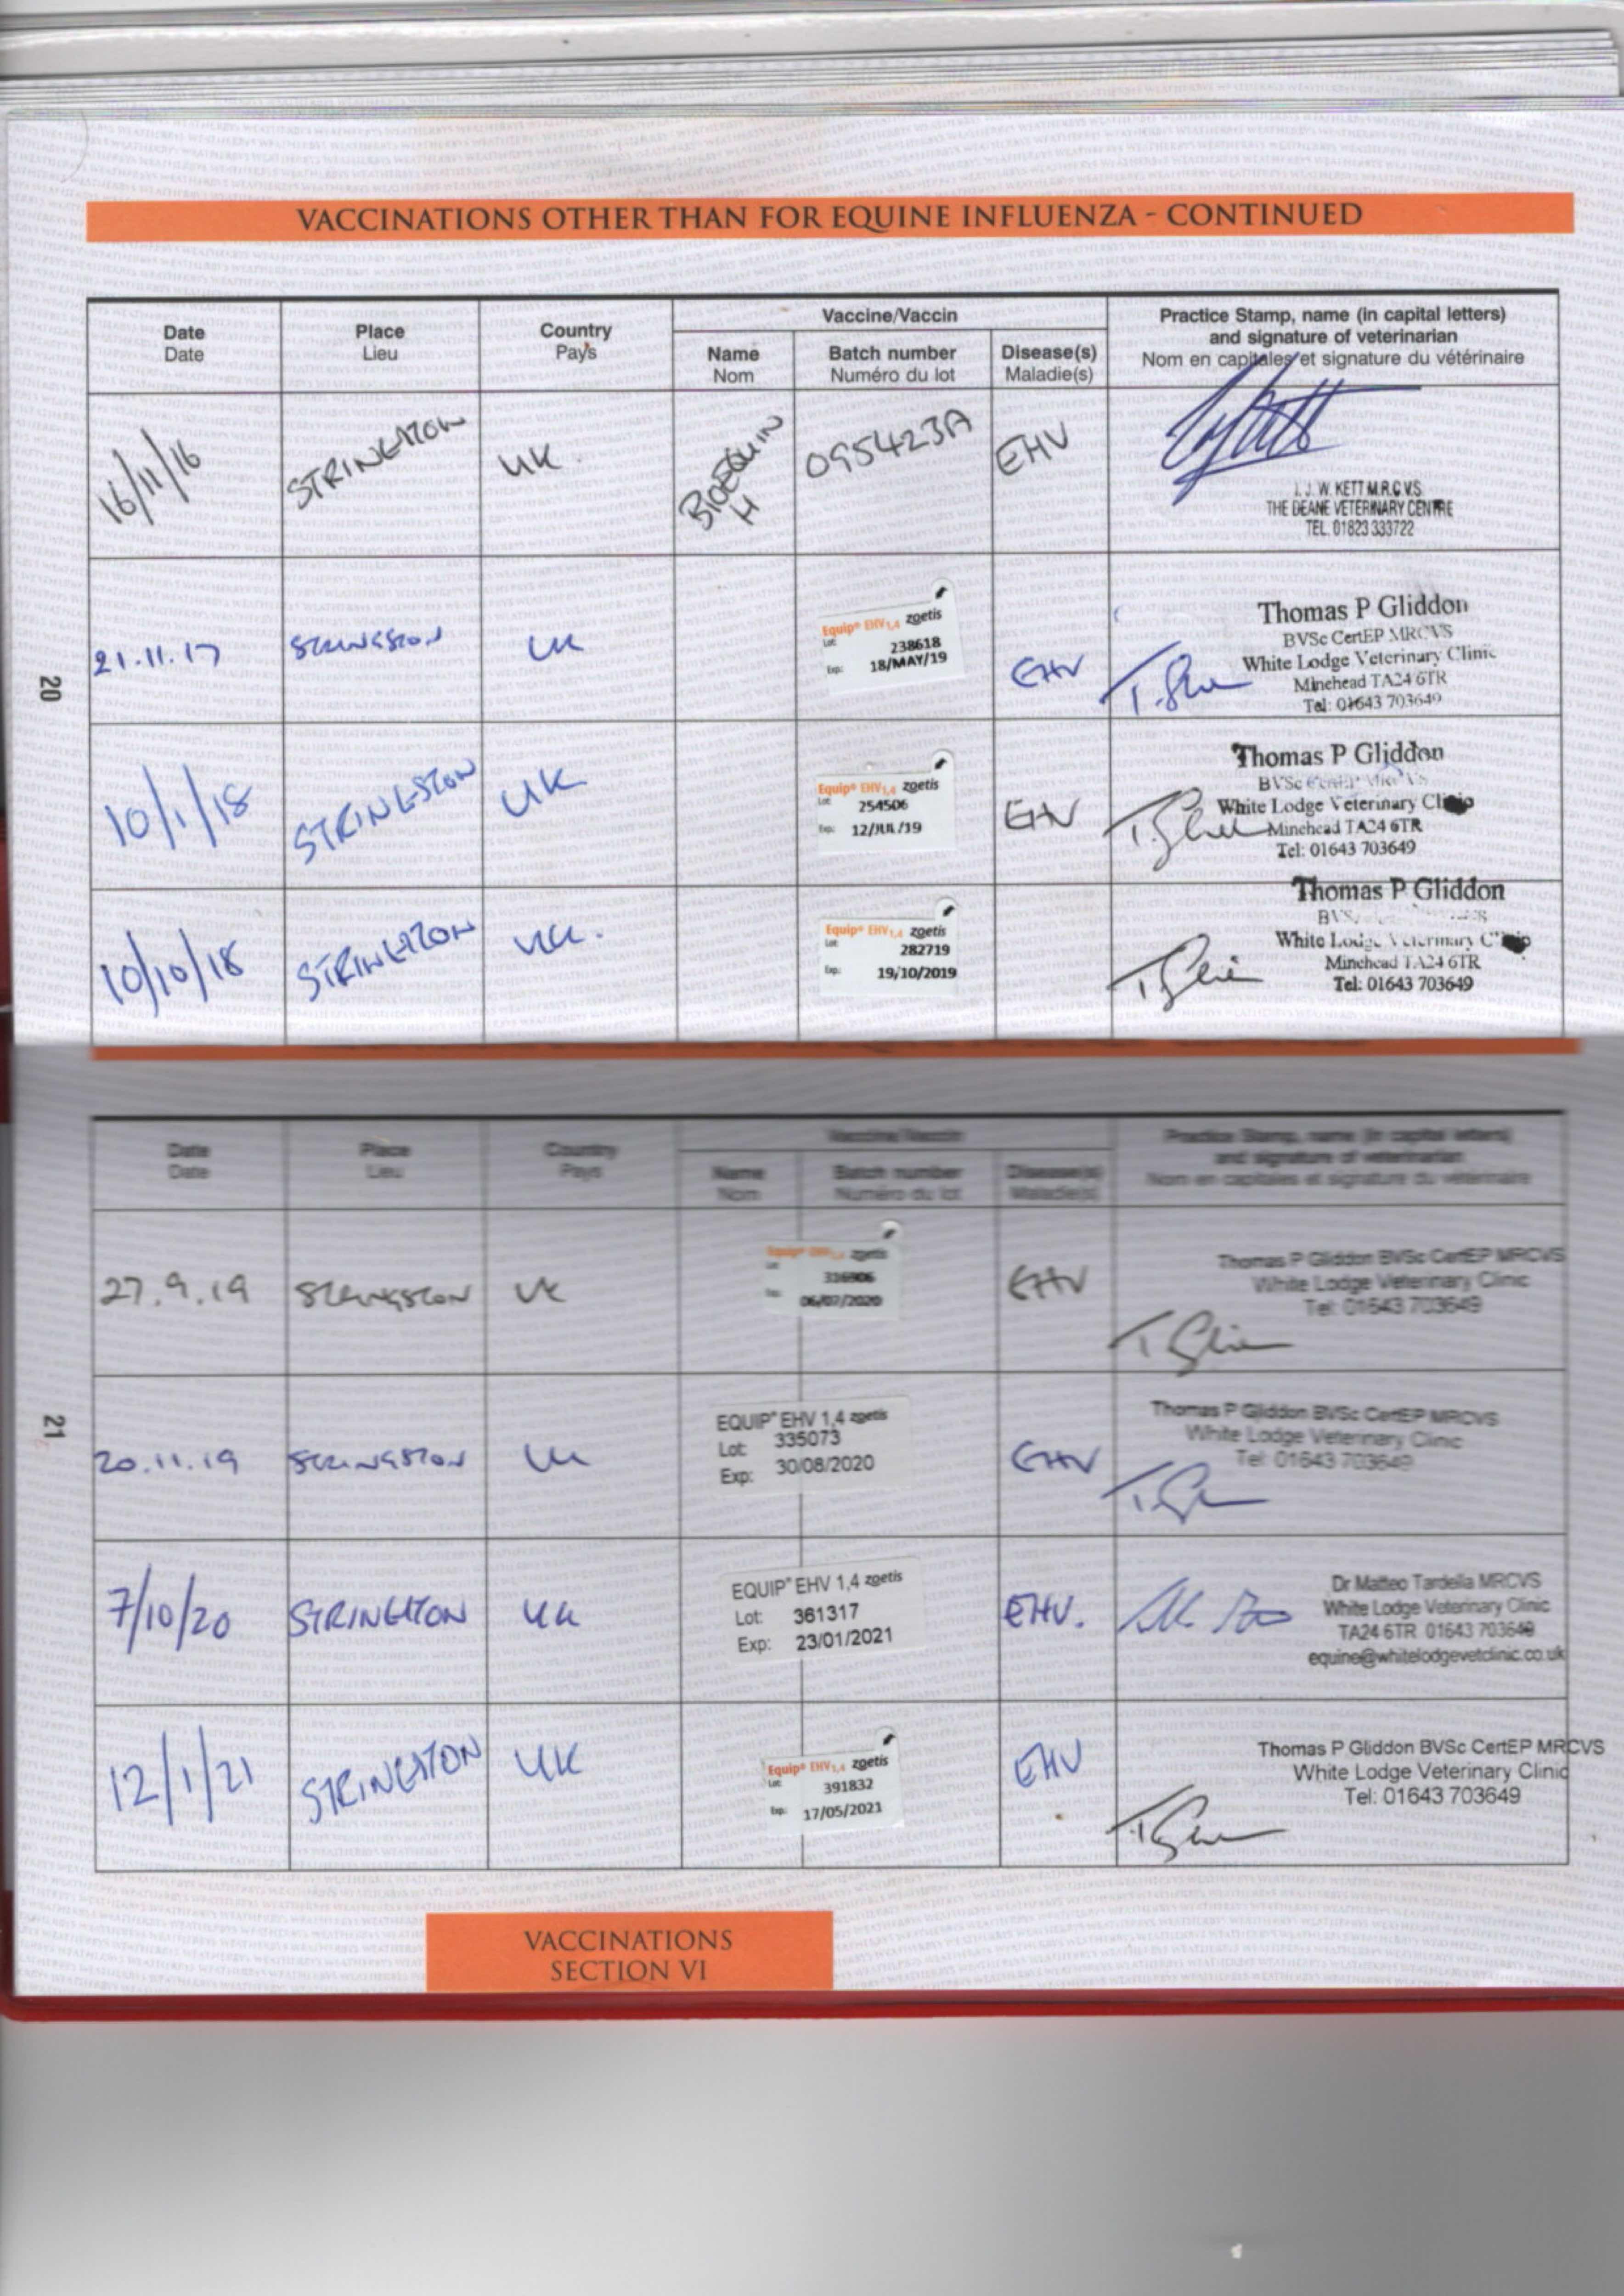 VACCINATIONS OTHER THAN FOR EQUINE INFLUENZA - CONTINUED
Date
Date
Place
Lieu
Country
Pays
Vaccine/Vaccin
Name
Nom
Batch number
Numéro du lot
Disease(s)
Maladie(s)
Practice Stamp, name (in capital letters)
and signature of veterinarian
Nom en capitales et signature du vétérinaire
16/11/16
STRINGSTON
UK.
BIOEQUIN
H
095423A
EHV
I. J. W. KETT M.R.C.V.S.
THE DEANE VETERINARY CENTRE
TEL. 01823 333722
21.11.17
STRINGSTON
UK
Equip® EHV1,4 zoetis
Lot: 238618
Exp: 18/MAY/19
EHV
Thomas P Gliddon
BVSc CertEP MRCVS
White Lodge Veterinary Clinic
Minehead TA24 6TR
Tel: 01643 703649
10/1/18
STRINGSTON
UK
Equip® EHV1,4 zoetis
Lot: 254506
Exp: 12/JUL/19
EHV
Thomas P Gliddon
BVSc
White Lodge Veterinary Clinic
Minehead TA24 6TR
Tel: 01643 703649
10/10/18
STRINGSTON
UK.
Equip® EHV1,4 zoetis
Lot: 282719
Exp: 19/10/2019
Thomas P Gliddon
White Lodge Veterinary Clinic
Minehead TA24 6TR
Tel: 01643 703649
20
Date
Date
Place
Lieu
Country
Pays
Vaccine/Vaccin
Name
Nom
Batch number
Numéro du lot
Disease(s)
Maladie(s)
Practice Stamp, name (in capital letters)
and signature of veterinarian
Nom en capitales et signature du vétérinaire
27.9.19
STRINGSTON
UK
Equip® EHV1,4 zoetis
06/07/2020
EHV
Thomas P Gliddon BVSc CertEP MRCVS
White Lodge Veterinary Clinic
Tel: 01643 703649
20.11.19
STRINGSTON
UK
EQUIP® EHV 1,4 zoetis
Lot: 335073
Exp: 30/08/2020
EHV
Thomas P Gliddon BVSc CertEP MRCVS
White Lodge Veterinary Clinic
Tel: 01643 703649
7/10/20
STRINGSTON
UK
EQUIP® EHV 1,4 zoetis
Lot: 361317
Exp: 23/01/2021
EHV.
Dr Matteo Tardella MRCVS
White Lodge Veterinary Clinic
TA24 6TR 01643 703649
equine@whitelodgevetclinic.co.uk
12/1/21
STRINGSTON
UK
Equip® EHV1,4 zoetis
Lot: 391832
Exp: 17/05/2021
EHV
Thomas P Gliddon BVSc CertEP MRCVS
White Lodge Veterinary Clinic
Tel: 01643 703649
21
VACCINATIONS
SECTION VI